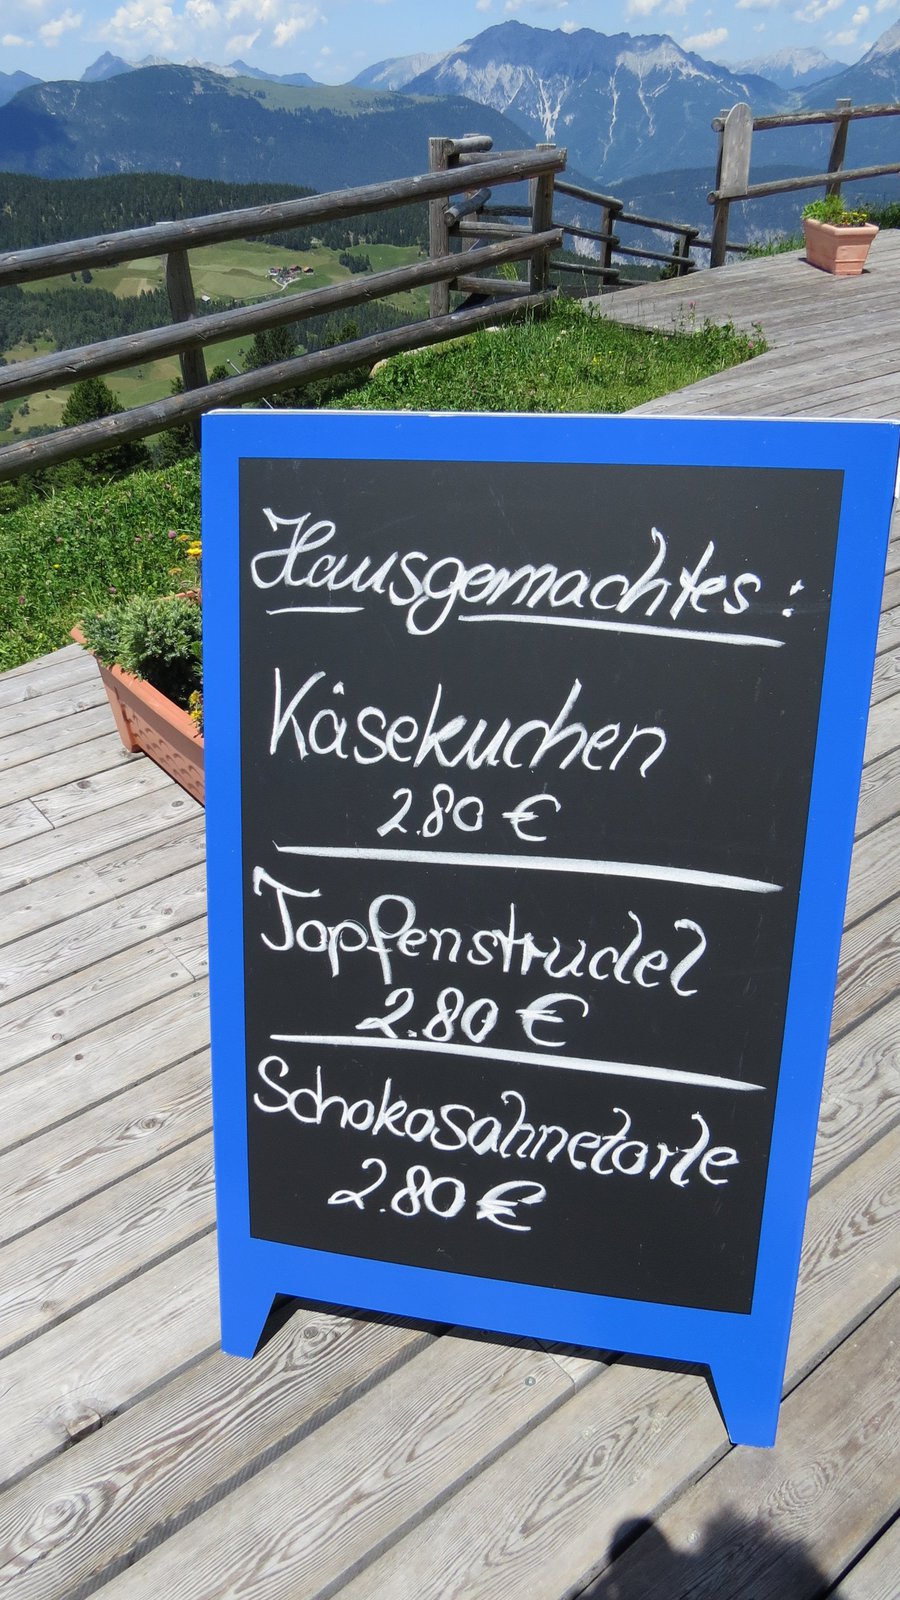 Hausgemachtes:
Käsekuchen
2.80 €
Topfenstrudel
2.80 €
Schokosahnetorte
2.80 €